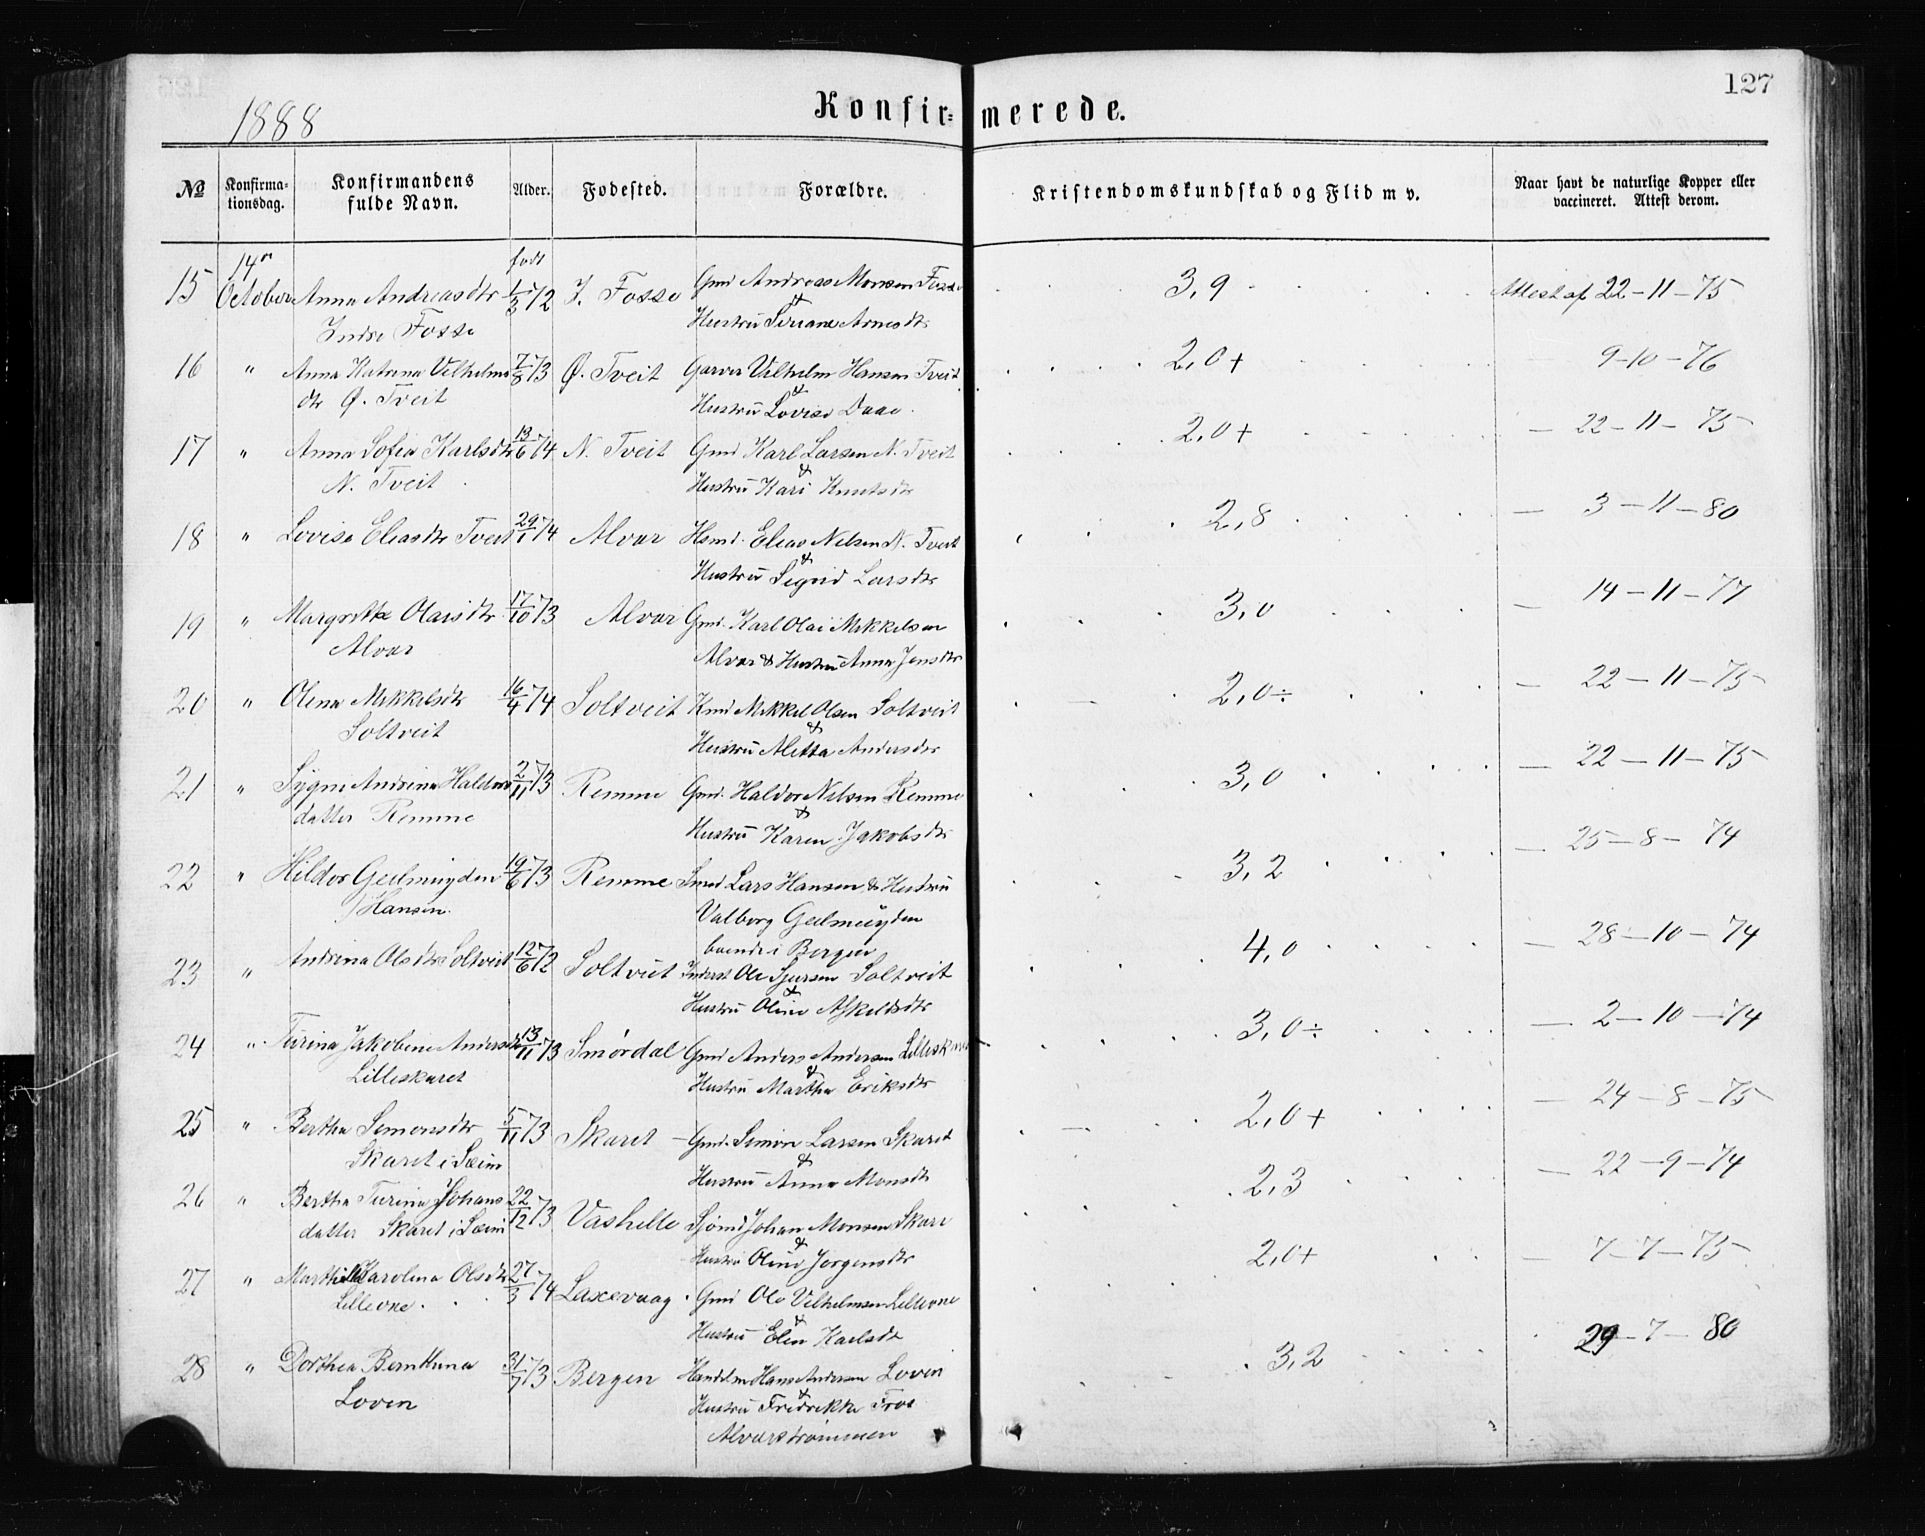 127
1888
Konfir= merede.
№ Konfirma-tionsdag. Konfirmandens fulde Navn. Alder. Fodested. Forældre. Kristendomskundskab og Flid m v. Naar havt de naturlige Kopper eller vaccineret. Attest derom.
14n født
15 October Anna Andreasdtr 1/3 72 I. Fosse Gmd Andreas Monsen Fosse 3,9 Attest af 22-11-75
Indre Fosse & Hustru Arnesdtr
16 " Anna Katrina Vilhelms 7/8 73 Ø. Tveit Garver Vilhelm Hansen Tveit 2,0+ 9-10-76
dtr Ø. Tveit & Hustru Lovise Daae.
17 " Anna Sofia Karlsdtr 13/6 74 N. Tveit Gmd Karl Larsen N. Tveit 2,0+ — 22-11-75
N. Tveit & Hustru Kari Knutsdtr
18 " Lovise Eliasdtr Tveit 29/1 74 Alvar Hsmd. Elias Nilsen N. Tveit 2,8 — 3-11-80
& Hustru Sigrid Larsdtr
19 " Margrethe Olaisdtr 17/10 73 Alvar Gmd. Karl Olai Mikkelsen 3,0 — 14-11-77
Alvar Alvar & Hustru Anna Jensdtr
20 " Olena Mikkelsdtr 16/4 74 Soltveit Kmd Mikkel Olsen Soltveit 2,0÷ — 22-11-75
Soltveit & Hustru Aletta Andersdtr
21 " Andrina Haldors 2/11 73 Remme Gmd. Haldor Nilsen Remme 3,0 — 22-11-75
datter Remme & Hustru Karen Jakobsdtr
22 " Hildor Geelmuyden 19/6 73 Remme Smed Lars Hansen & Hustru 3,2 — 25-8-74
Hansen. Valborg Geelmuyden
boende i Bergen
23 " Andrina Olsdtr Soltveit 12/6 72 Soltveit Inderst Ole Sjursen Soltveit 4,0 — 28-10-74
& Hustru Oline Askeldsdtr
24 " Turina Jakobine Andersdtr 13/11 73 Smørdal Gmd Anders Andersen Lilleskaret 3,0÷ — 2-10-74
Lilleskaret & Hustru Martha Eriksdtr
25 " Bertha Simonsdtr 5/11 73 Skaret — Gmd. Simon Larsen Skaret 2,0+ — 24-8-75
Skaret i Seim & Hustru Anna Monsdtr
26 " Bertha Turina Johans 22/12 73 Vashelle Sjømd Johan Monsen Skare 2,3 — 22-9-74
datter Skaret i Seim & Hustru Oline Jorgensdtr
27 " Karolina Olsdtr 27/3 74 Laxevaag Gmd Ole Vilhelmsen Lilleone 2,0+ — 7-7-75
Lilleone. & Hustru Elen Karlsdt
28 " Dorthea Bernthina 31/7 73 Bergen Handelm Hans Andersen Loven 3,2 29-7-80
Loven & Hustru Fredrikke Troe
Alvarstrømmen